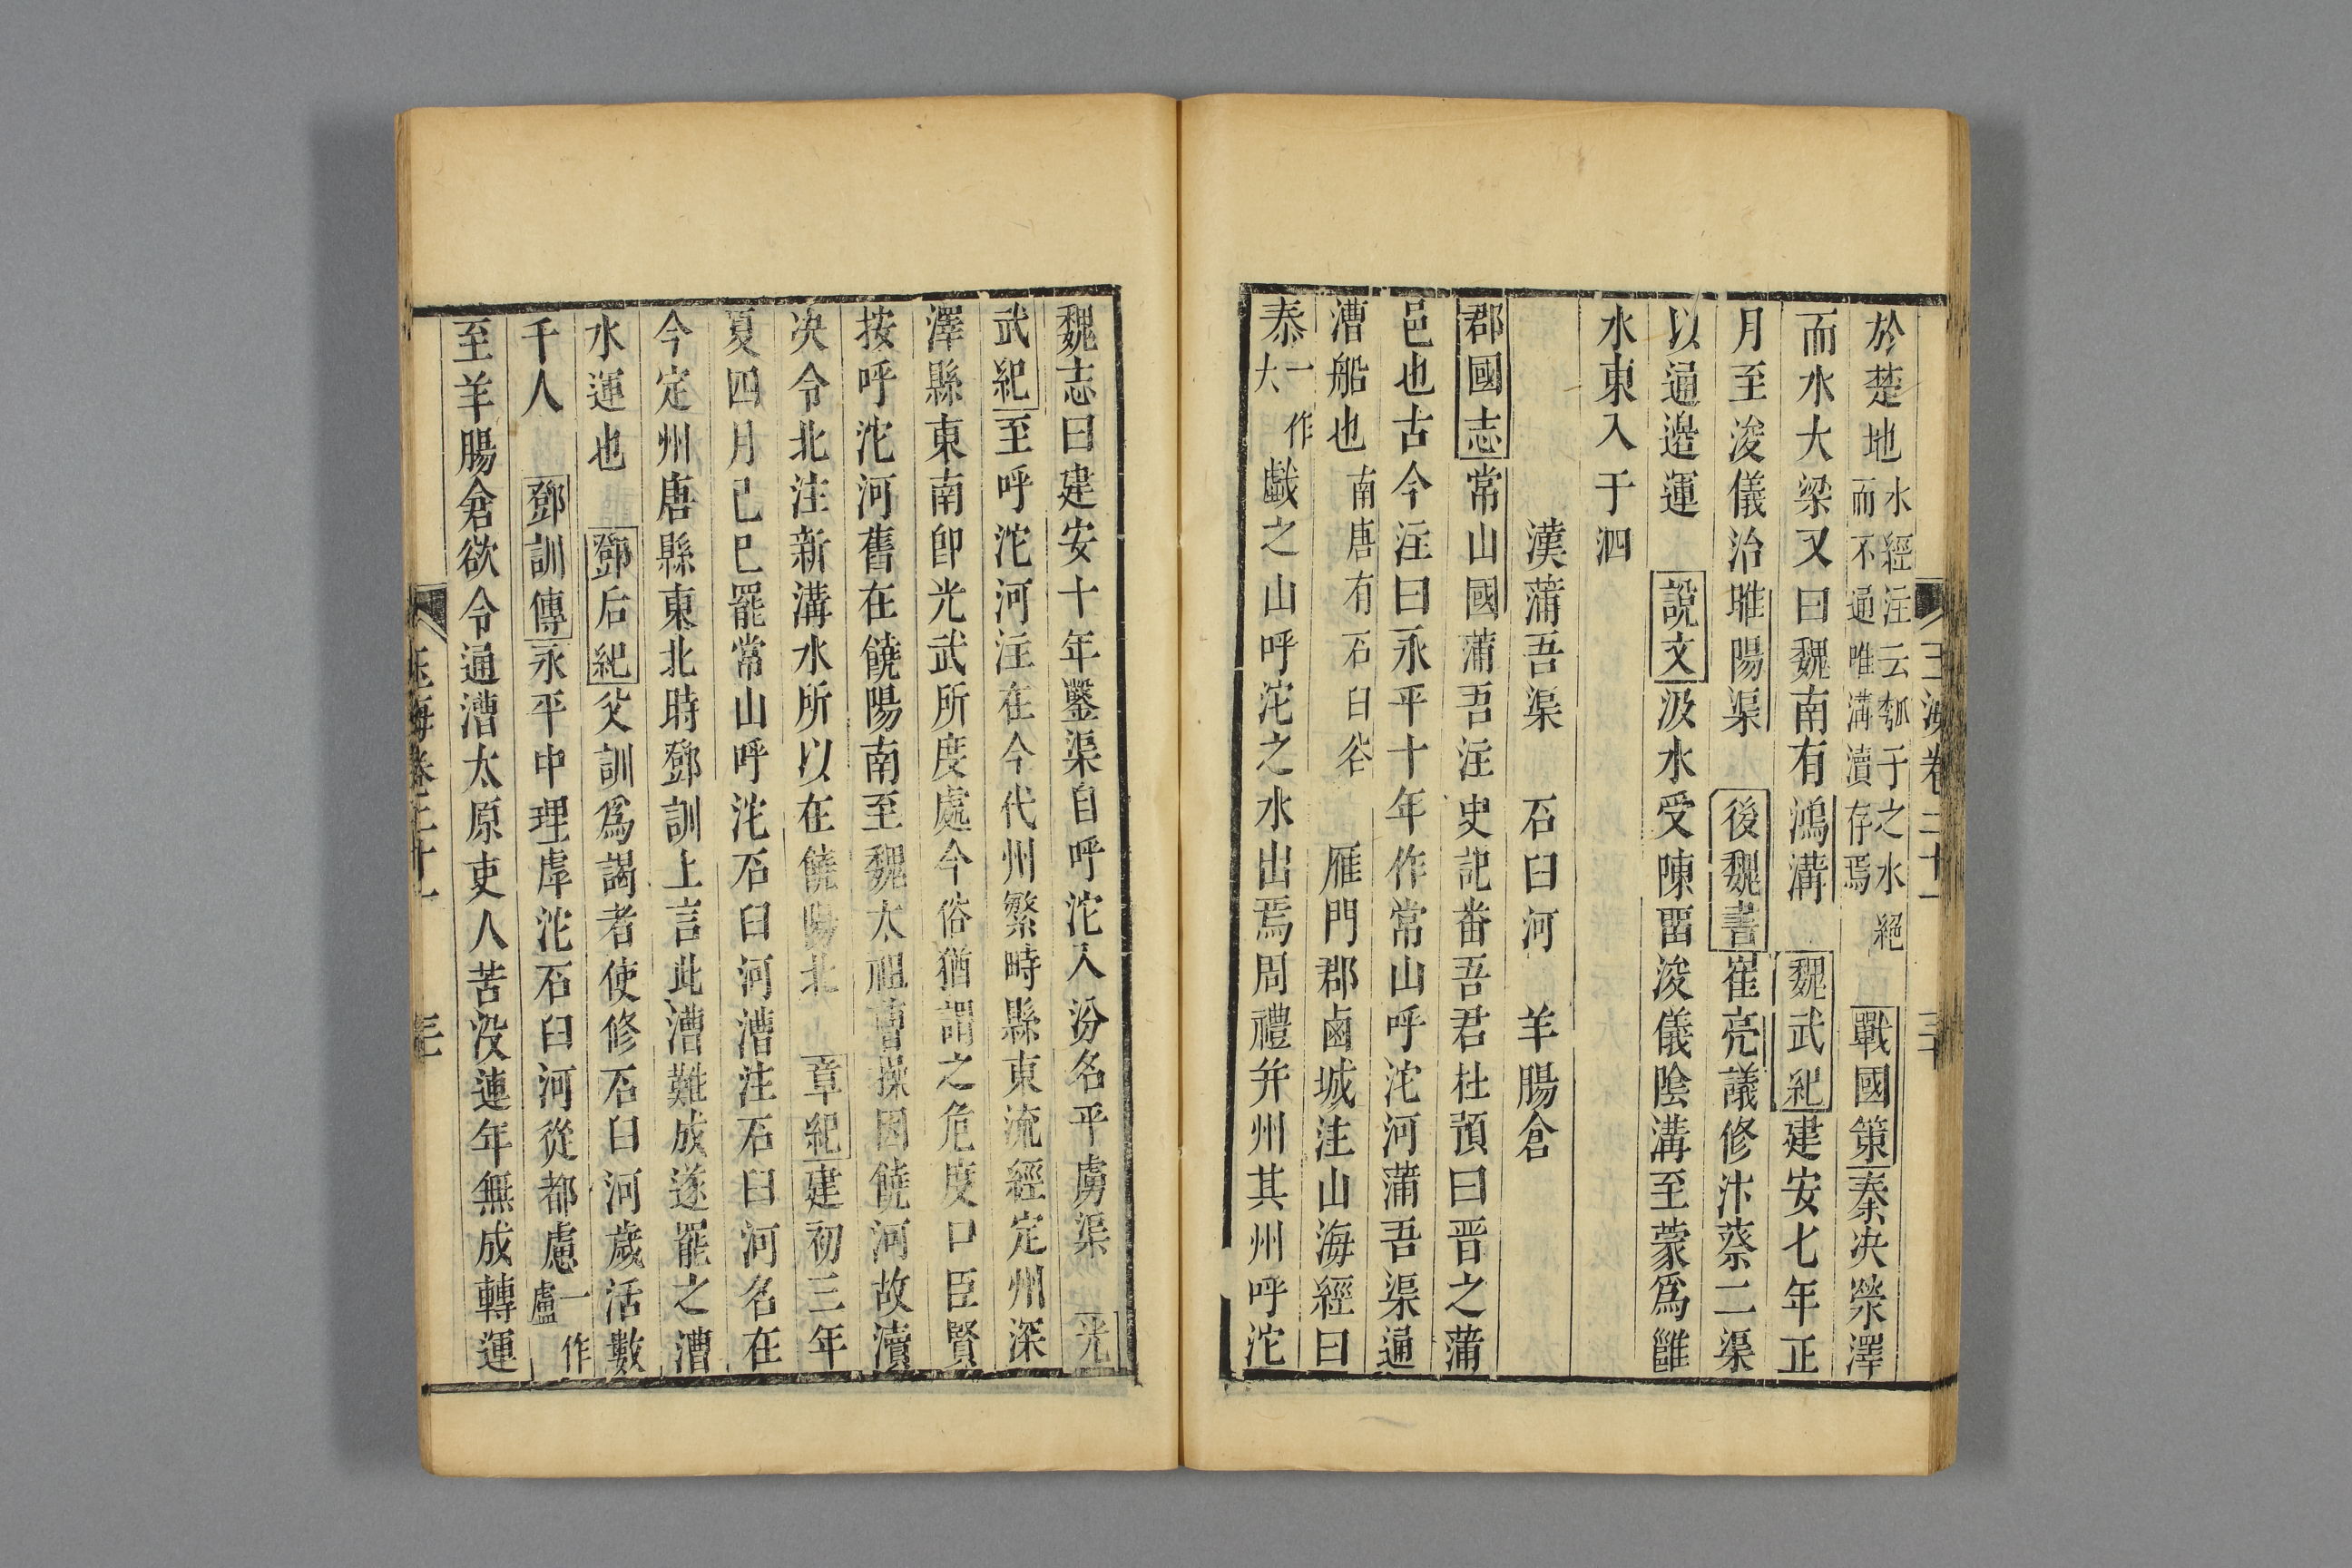 玉海卷二十一 三十
於楚地水經注云瓠于之水絕而不通唯溝瀆存焉 戰國策秦决滎澤
而水大梁又曰魏南有鴻溝 魏武紀建安七年正
月至浚儀治睢陽渠 後魏書崔亮議修汴蔡二渠
以通邉運 說文汳水受陳畱浚儀陰溝至蒙爲雝
水東入于泗
漢蒲吾渠 石臼河 羊腸倉
郡國志常山國蒲吾注史記番吾君杜預曰晋之蒲
邑也古今注曰永平十年作常山呼沱河蒲吾渠通
漕船也南唐有石臼谷 雁門郡鹵城注山海經曰
泰一作大戱之山呼沱之水出焉周禮并州其州呼沱
魏志曰建安十年鑿渠自呼沱入汾名平虜渠 光
武紀至呼沱河注在今代州繁畤縣東流經定州深
澤縣東南卽光武所度處今俗猶謂之危度口臣賢
按呼沱河舊在饒陽南至魏太祖曹操因饒河故瀆
决令北注新溝水所以在饒陽北 章紀建初三年
夏四月已巳罷常山呼沱石臼河漕注石臼河名在
今定州唐縣東北時鄧訓上言此漕難成遂罷之漕
水運也 鄧后紀父訓爲謁者使修石臼河歲活數
千人 鄧訓傳永平中理虖沱石臼河從都慮一作盧
至羊腸倉欲令通漕太原吏人苦没連年無成轉運
玉海卷二十一